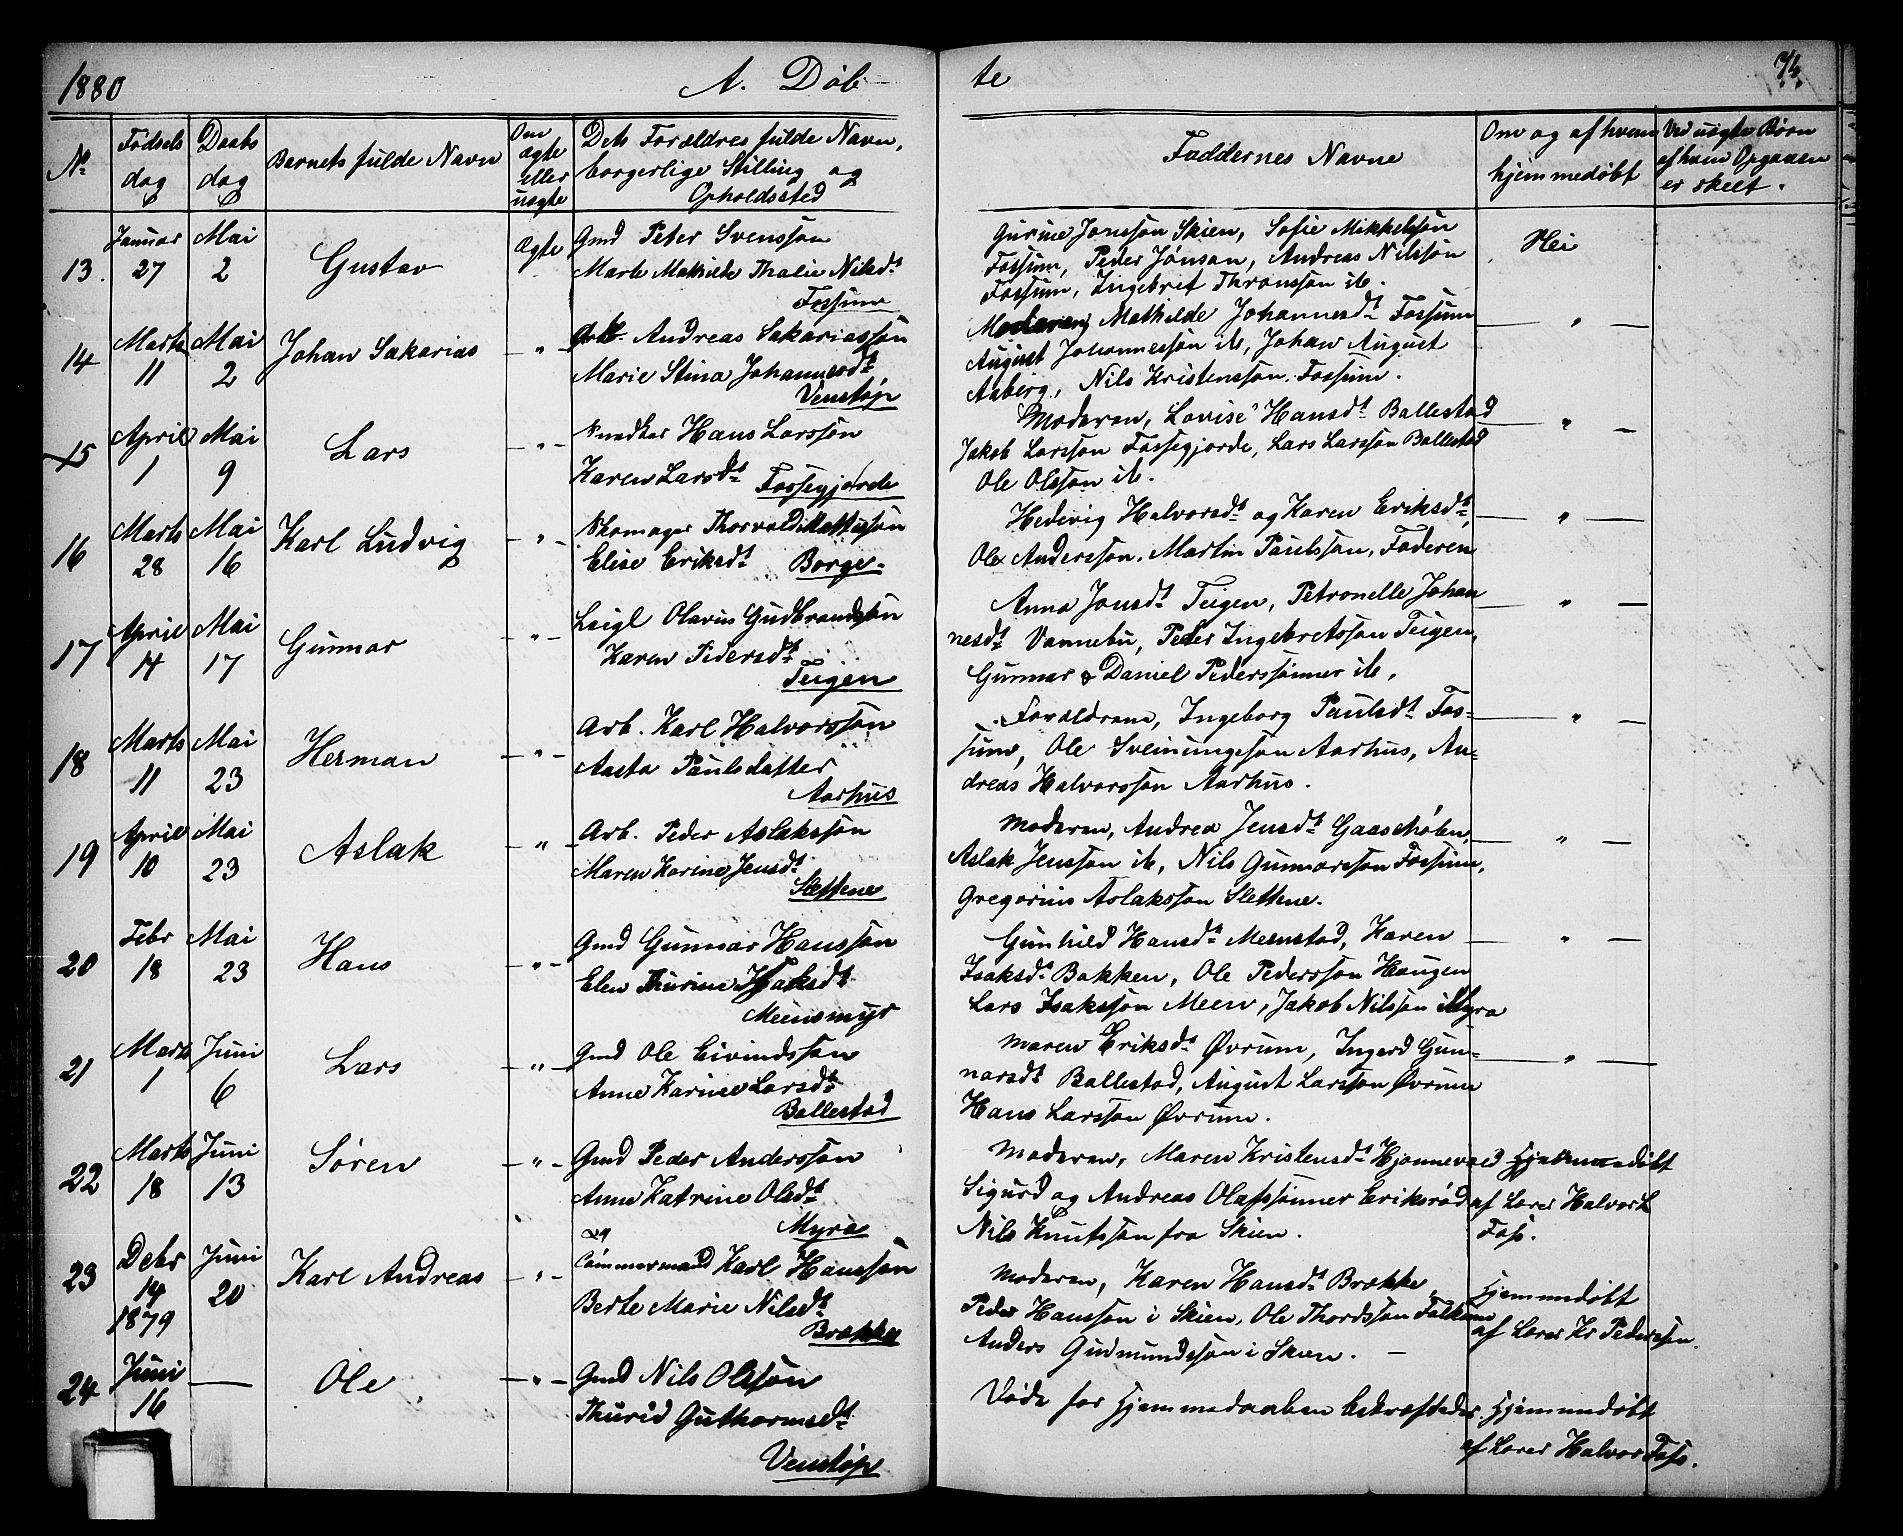 1880
A. Døb
te
74
No
Fødsels
dag
Daabs
dag
Barnets fulde Navn
Om
ægte
eller
uægte
Dets Forældres fulde Navn,
borgerlige Stilling og
Opholdssted
Faddernes Navne
Om og af hvem
hjemmedøbt
Ved uægte Børn
af hvem Opgaven
er skeet.
13. Januar 27 Mai 2 Gustav Ægte
Gmd Peter Svensson
Marte Mathilde Thalie Nilsdt
Fossum
Gurine Jonsson Skien, Sofie Mikkelsson
Fossum, Peder Jónsen, Andreas Nilsson
Fossum, Ingebret Thronsson ib.
Nei
14 Marts 11 Mai 2 Johan Sakarias - " -
Arb. Andreas Sakariasson
Marie Stina Johannesdt
Venstøp
Moderen, Mathilde Johannesdt Fossum
August Johannesson ib, Johan August
Aaberg, Nils Kristensson Fossum.
— " —
15 April 1 Mai 9 Lars - " -
Snedker Hans Larsson
Karen Larsdt Fossegjorde
Moderen, Lovise Hansdt Ballestad
Jakob Larsson Fossegjorde, Lars Larsson Ballestad
Ole Olsson ib.
— " —
16 Marts 28 Mai 16 Karl Ludvig - " -
Skomager Thorvald Mathisson
Elise Eriksdt Borge.
Hedevig Halvorsdt og Karen Eriksdt,
Ole Andersson, Martin Paulsson, Faderen
— " —
17 April 14 Mai 17 Gunnar - " -
Leigl Olavus Gudbrandsson
Karen Pedersdt
Teigen
Anna Jonsdt Teigen, Petronelle Johan
nesdt Vannebu, Peder Ingebretsson Teigen,
Gunnar & Daniel Pederssønner ib,
— " —
18 Marts 11 Mai 23 Herman - " -
Arb. Karl Halvorsson
Aasta Paulsdatter
Aarhus
Forældrene, Ingeborg Paulsdt Fos-
sum, Ole Sveinungsson Aarhus, An-
dreas Halvorsson Aarhus.
— " —
19 April 10 Mai 23 Aslak - " -
Arb. Peder Aslaksson
Maren Karine Jensdt
Slettene
Moderen, Andrea Jensdt Gaaseholen,
Aslak Jensson ib, Nils Gunnarsson Fossum,
Gregorius Aslaksson Slettene.
— " —
20 Febr 18 Mai 23 Hans - " -
Gmd Gunnar Hansson
Elen Thurine Isaksdt
Meensmyr
Gunhild Hansdt Meenstad, Karen
Isaksdt Bakken, Ole Pedersson Haugen
Lars Isaksson Meen, Jakob Nilsson Myra
— " —
21 Marts 1 Juni 6 Lars - " -
Gmd Ole Eivindsson
Anne Karine Larsdt
Ballestad
Maren Eriksdt Øvrum, Ingerd Gun-
narsdt Ballestad, August Larsson Øvrum
Hans Larsson Øvrum.
— " —
22 Marts 18 Juni 13 Søren - " -
Gmd Peder Andersson
Anne Katrine Olsdt
Myra
Moderen, Maren Kristensdt Hjonnevald
Sigurd og Andreas Olafssønner Eriksrød
Nils Knutsson fra Skien.
Hjemmedøbt
af Lærer Halvor L
Foss.
23 Debr 14 1879 Juni 20 Karl Andreas - " -
Tømmermand Karl Hansson
Berte Marie Nilsdt
Brækka
Moderen, Karen Hansdt Brække,
Peder Hansson i Skien, Ole Thordsson Falkum
Anders Gudmundsson i Skien. —
Hjemmedøbt
af Lærer Kr Pedersson.
24 Juni 16 — Ole - " -
Gmd Nils Olsson
Thurid Guthormsdt
Venstøp
Døde før Hjemmedaaben bekræftedes
Hjemmedøbt
af Lærer Halvor Foss.